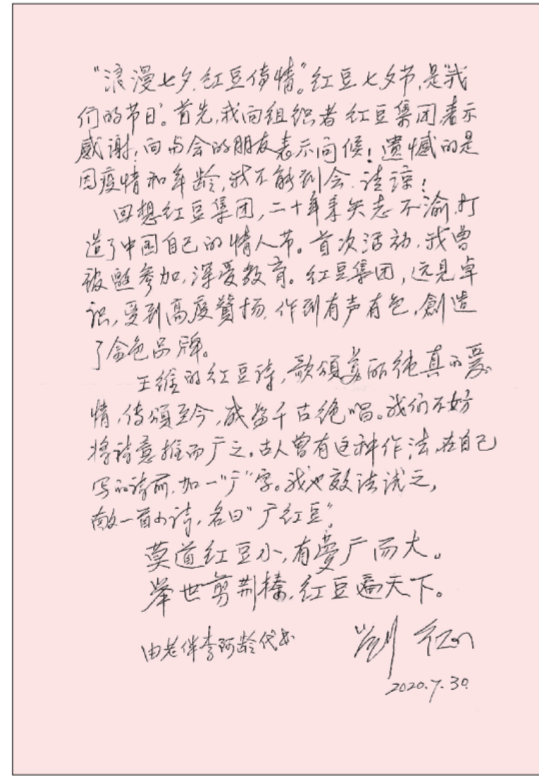 “浪漫七夕.红豆传情”。红豆七夕节,是我
们的节日。首先,我向组织者红豆集团表示
感谢!向与会的朋友表示问候!遗憾的是
因疫情和年龄,我不能到会.请谅!
回想红豆集团,二十年来矢志不渝,打
造了中国自己的情人节。首次活动,我曾
被邀参加,深受教育。红豆集团,远见卓
识,受到高度贊扬.作到有声有色,創造
了金色品牌。
王维的红豆诗,歌頌美丽纯真的爱
情,传頌至今,成为千古绝唱。我们不妨
将诗意推而广之。古人曾有这种作法,在自己
写的诗前.加一“广”字。我也效法试之,
献一首小诗,名曰“广红豆”。
莫道红豆小,有夢广而大。
举世剪荆榛,红豆遍天下。
由老伴李阿龄代书
刘征
2020.7.30